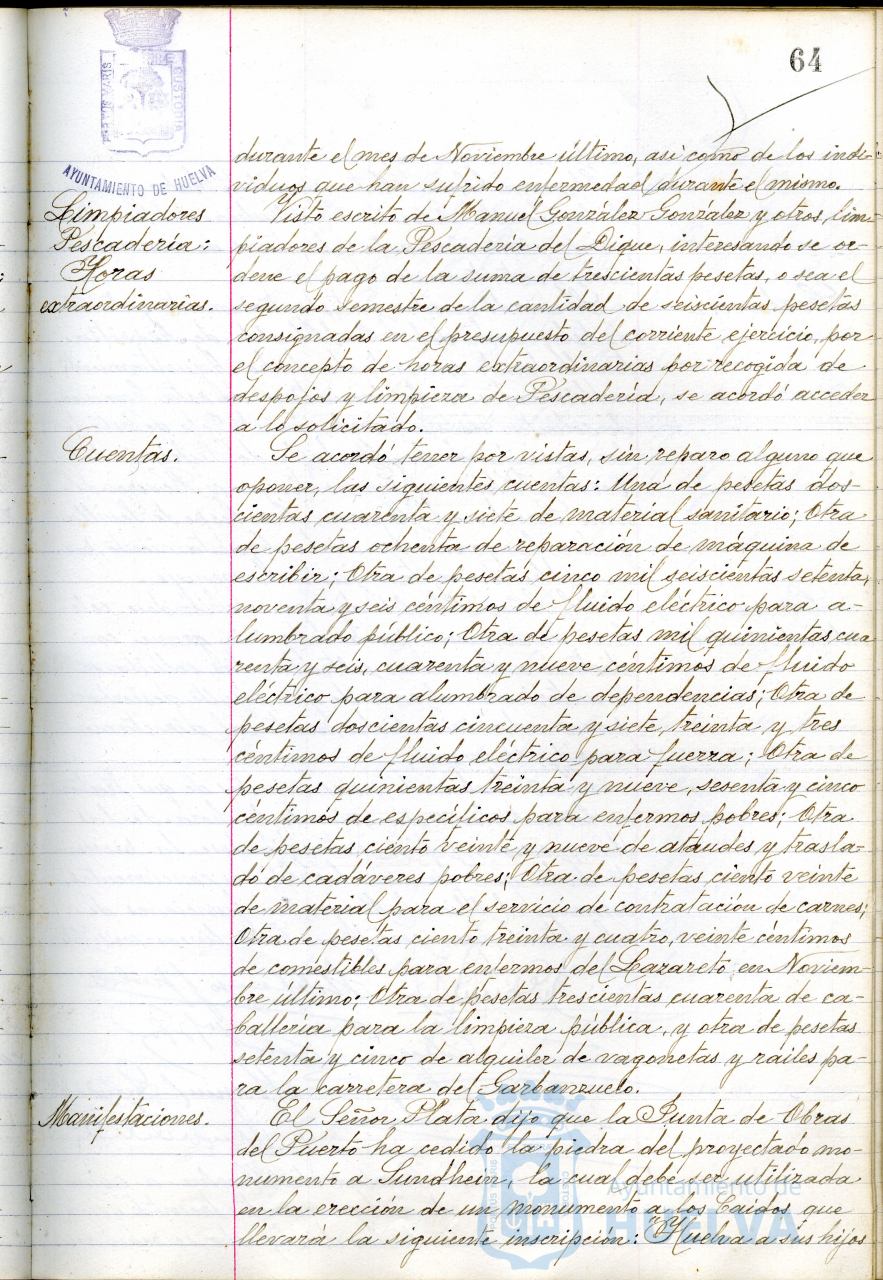 64
PORTUS MARIS
CUSTODIA
AYUNTAMIENTO DE HUELVA
durante el mes de Noviembre último, así como de los indi-
viduos que han sufrido enfermedad durante el mismo.
Limpiadores
Pescadería:
Horas
extraordinarias.
Visto escrito de Manuel González González y otros, lim-
piadores de la Pescadería del Dique, interesando se or-
dene el pago de la suma de trescientas pesetas, o sea el
segundo semestre de la cantidad de seiscientas pesetas
consignadas en el presupuesto del corriente ejercicio, por
el concepto de horas extraordinarias por recogida de
despojos y limpieza de Pescadería, se acordó acceder
a lo solicitado.
Cuentas.
Se acordó tener por vistas, sin reparo alguno que
oponer, las siguientes cuentas: Una de pesetas dos-
cientas cuarenta y siete de material sanitario; Otra
de pesetas ochenta de reparación de máquina de
escribir; Otra de pesetas cinco mil seiscientas setenta,
noventa y seis céntimos de fluido eléctrico para a-
lumbrado público; Otra de pesetas mil quinientas cua
renta y seis, cuarenta y nueve céntimos de fluido
eléctrico para alumbrado de dependencias; Otra de
pesetas doscientas cincuenta y siete, treinta y tres
céntimos de fluido eléctrico para fuerza; Otra de
pesetas quinientas treinta y nueve, sesenta y cinco
céntimos de específicos para enfermos pobres; Otra
de pesetas ciento veinte y nueve de ataudes y trasla-
do de cadáveres pobres; Otra de pesetas ciento veinte
de material para el servicio de contratación de carnes;
Otra de pesetas ciento treinta y cuatro, veinte céntimos
de comestibles para enfermos del Lazareto en Noviem-
bre último; Otra de pesetas trescientas cuarenta de ca-
ballería para la limpieza pública, y otra de pesetas
setenta y cinco de alquiler de vagonetas y railes pa-
ra la carretera del Garbanzuelo.
Manifestaciones.
El Señor Plata dijo que la Junta de Obras
del Puerto ha cedido la piedra del proyectado mo-
numento a Sundhein, la cual debe ser utilizada
en la erección de un monumento a los Caidos, que
llevará la siguiente inscripción: "Huelva a sus hijos
Ayuntamiento de
HUELVA